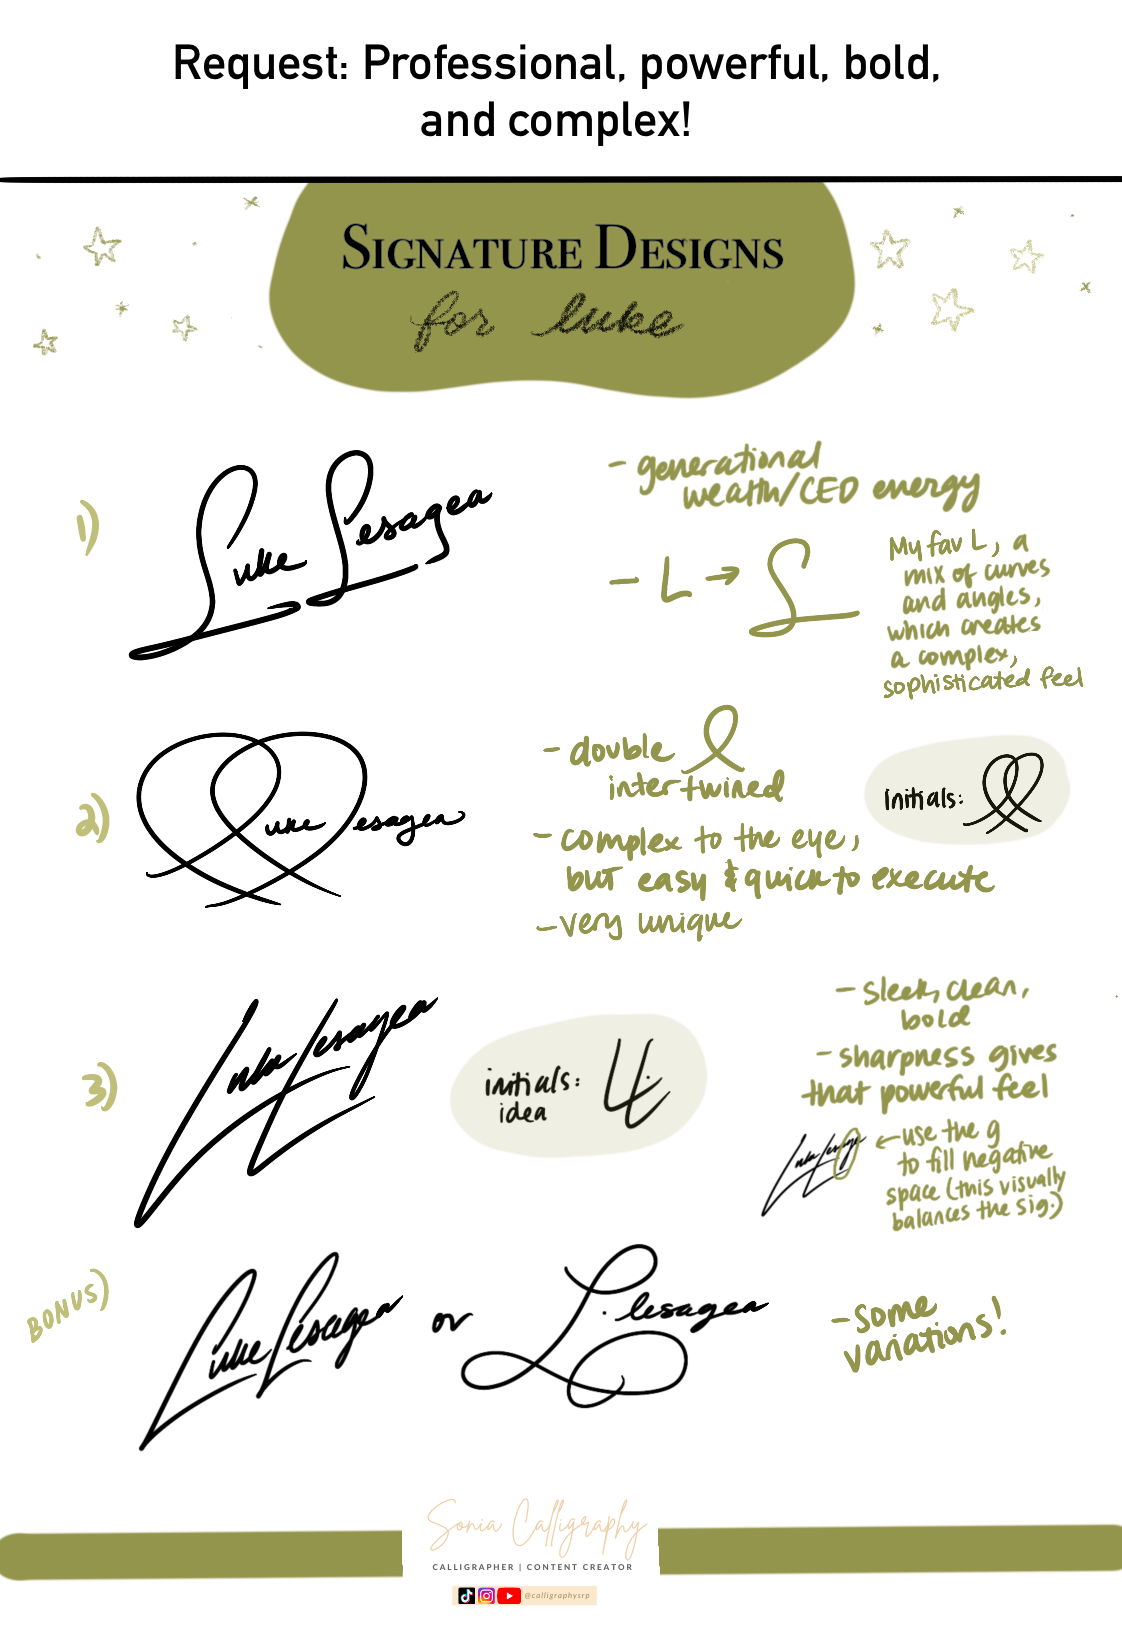 Request: Professional, powerful, bold,
and complex!
SIGNATURE DESIGNS
for luke
1)
Luke Lesagea
- generational
wealth/CEO energy
- L → L
My fav L, a
mix of curves
and angles,
which creates
a complex,
sophisticated feel
2)
Luke Lesagea
- double l
intertwined
initials: ll
- complex to the eye,
but easy & quick to execute
- very unique
3)
Luke Lesagea
initials:
idea
LL
- sleek, clean,
bold
- sharpness gives
that powerful feel
Luke Lesagea
← use the g
to fill negative
space (this visually
balances the sig.)
BONUS)
Luke Lesagea or L. lesagea
- some
variations!
Sonia Calligraphy
CALLIGRAPHER | CONTENT CREATOR
@calligraphysrp